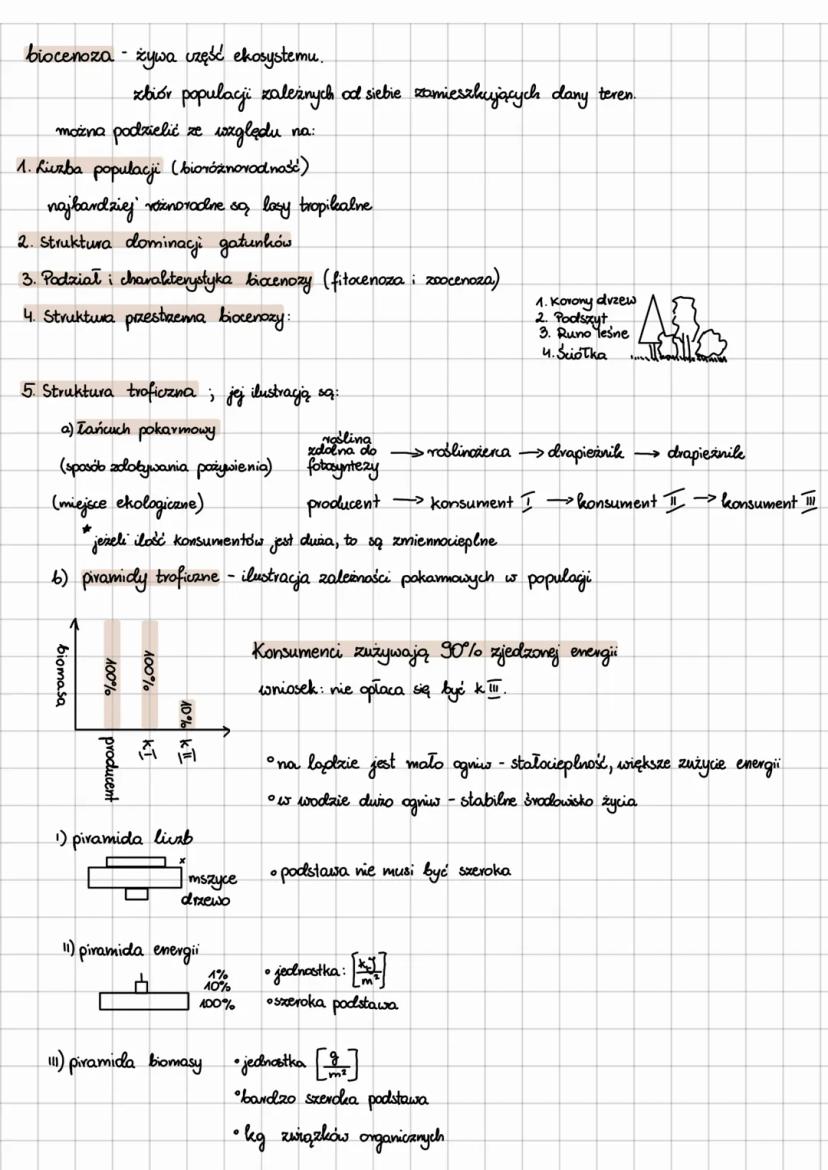 biocenoza - żywa część ekosystemu.
zbiór populacji zależnych od siebie zamieszkujących dany teren.
można podzielić ze względu na:
1. Liczba populacji (bioróżnorodność)
najbardziej różnorodne są lasy tropikalne
2. Struktura dominacji gatunków
3. Podział i charakterystyka biocenozy (fitocenoza i zoocenoza)
4. Struktura przestrzenna biocenozy:
1. Korony drzew
2. Podszyt
3. Runo leśne
4. Ściółka
5. Struktura troficzna ; jej ilustracją są:
a) łańcuch pokarmowy
(sposób zdobywania pożywienia)
roślina
zdolna do
fotosyntezy
→ roślinożerca → drapieżnik → drapieżnik
(miejsce ekologiczne)
producent → konsument I → konsument II → konsument III
* jeżeli ilość konsumentów jest duża, to są zmiennocieplne
b) piramidy troficzne - ilustracja zależności pokarmowych w populacji
biomasa
100%
100%
10%
producent
k I
k II
Konsumenci zużywają 90% zjedzonej energii
wniosek: nie opłaca się być k III.
° na lądzie jest mało ogniw - stałocieplność, większe zużycie energii
° w wodzie dużo ogniw - stabilne środowisko życia
I) piramida liczb
x
mszyce
drzewo
• podstawa nie musi być szeroka
II) piramida energii
1%
10%
100%
• jednostka: [kJ/m²]
° szeroka podstawa
III) piramida biomasy
• jednostka [g/m²]
° bardzo szeroka podstawa
• kg związków organicznych